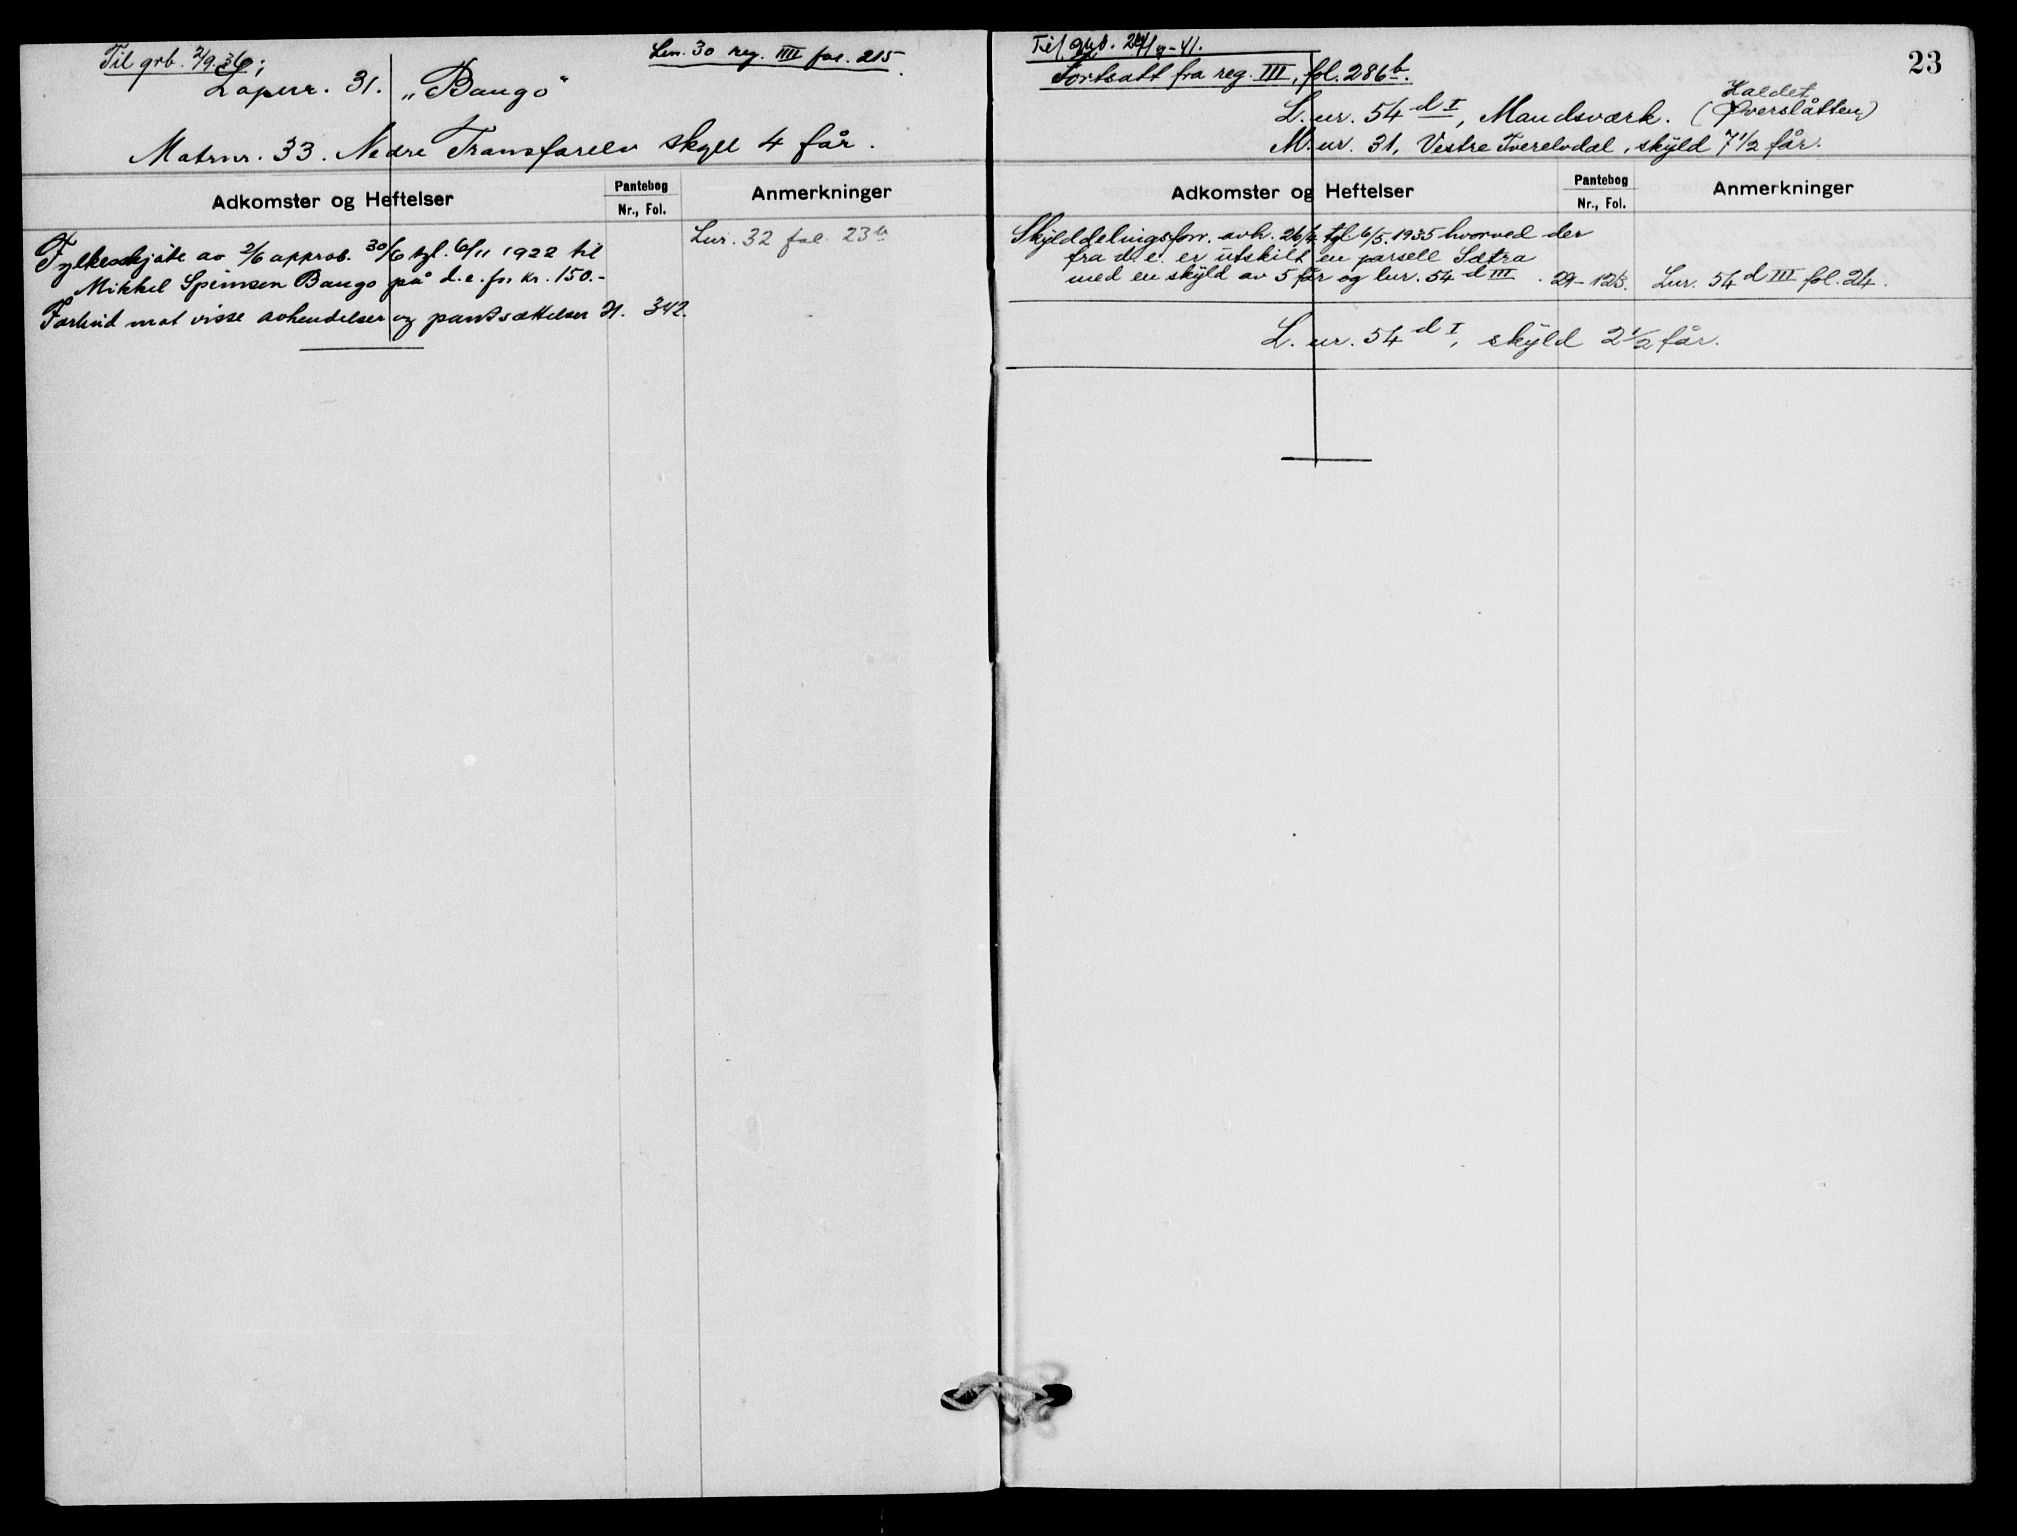 Til grb. 2/9.36;
Lnr. 30 reg. IIII fol. 215.
Løpnr. 31. „Baugo"
Matrnr. 33. Nedre Transfarelv skyll 4 får.
Adkomster og Heftelser
Pantebog
Nr., Fol.
Anmerkninger
Fylkesskjøte av 2/6 approb. 30/6 tgl. 6/11 1922 til
Mikkel Speinsen Baugo på d.e. for kr. 150.-
Forbud mot visse avhendelser og pantsættelser 21. 342.
Lnr. 32 fol. 23b
Til grb. 24/9-41.
Fortsatt fra reg. III, fol. 286b.
23
L. nr. 54 d I, Mandsværk. (Øverslåtten)
Haldet
M. nr. 31, Vestre Tverelvdal, skyld 7 1/2 får.
Adkomster og Heftelser
Pantebog
Nr., Fol.
Anmerkninger
Skylddelingsforr. avh. 26/4 tgl 6/5 1935 hvorved der
fra d.e. er utskilt en parsell Sætra
med en skyld av 5 får og lnr. 54 d III. 29-123. Lnr. 54 d III fol. 24.
L. nr. 54 d I, skyld 2 1/2 får.